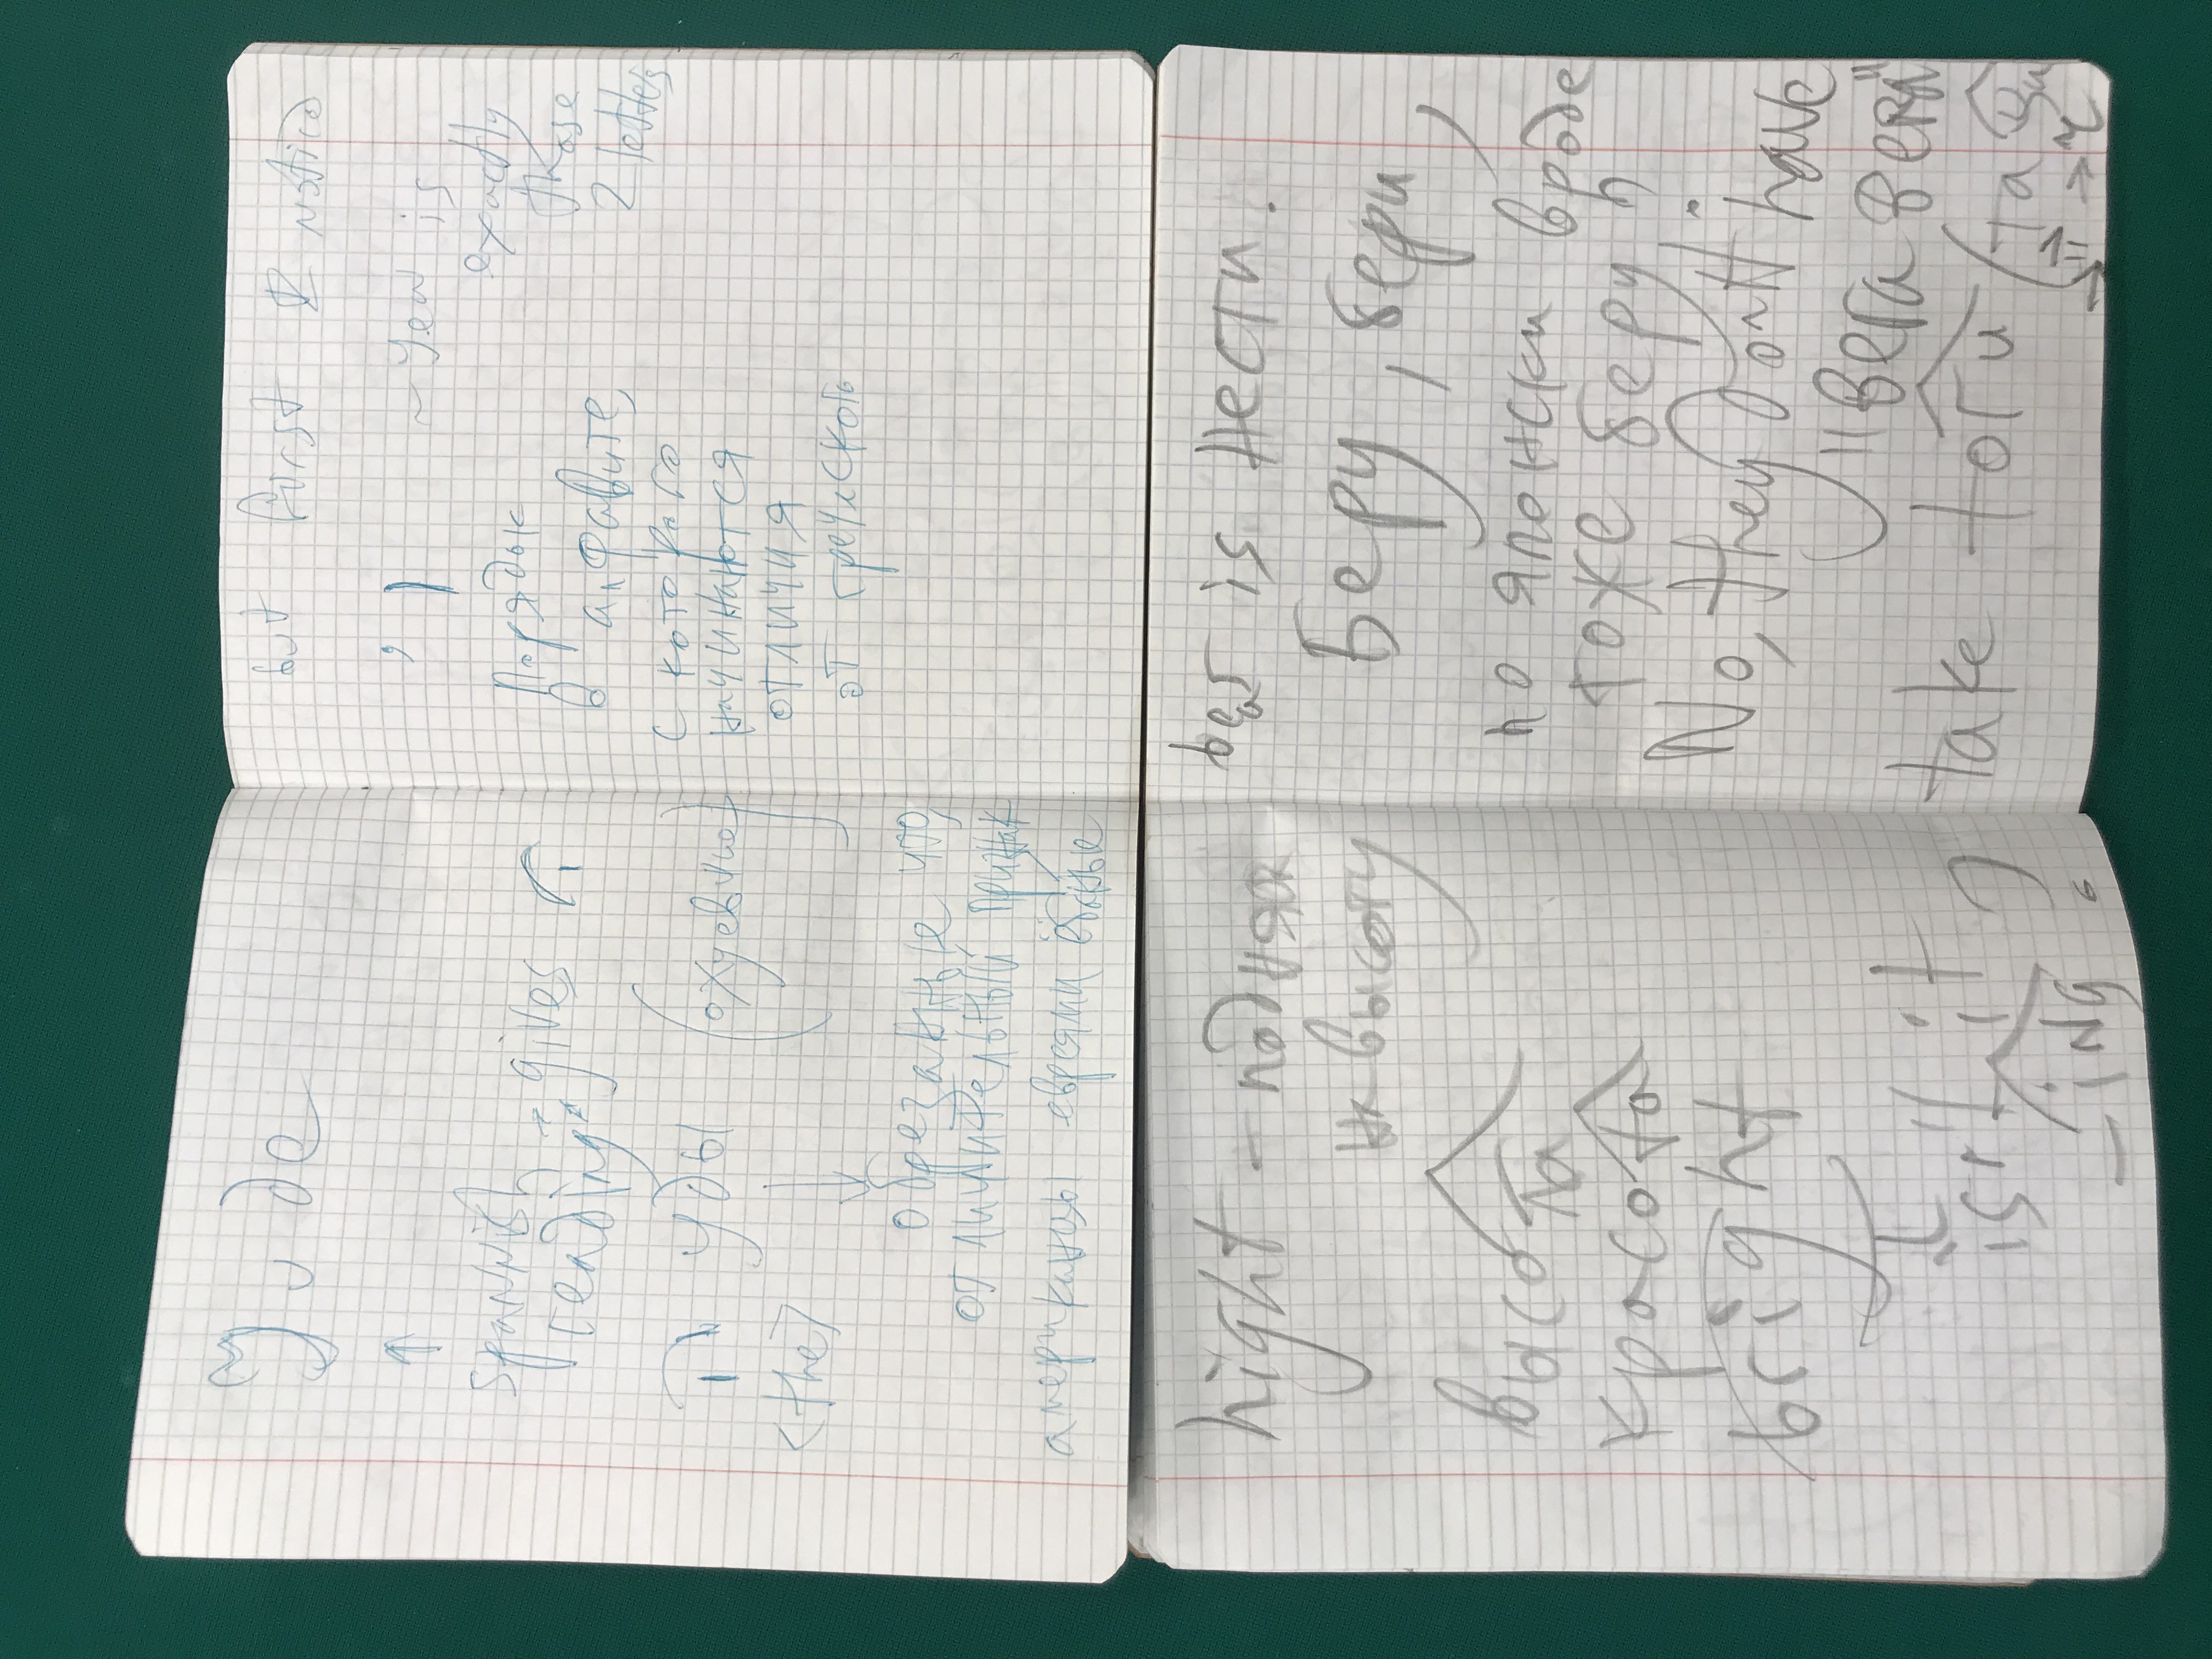 Jude
↑
Spannish
reading → gives
уды (охуевшие)
<the>
↓
обрезанные что,
отличительный признак
американцы евреями ёбаные
but first I notice
, ~ Jew is
exactly
those
2 letters
Порядок
в алфавите,
с которого
начинаются
отличия
от греческого
hight – подняя
на высоту
высота
красота
bright
isn't it
–ing
is нести.
Беру, бери,
по японски вроде
тоже беру
No, they don't have
take тоги